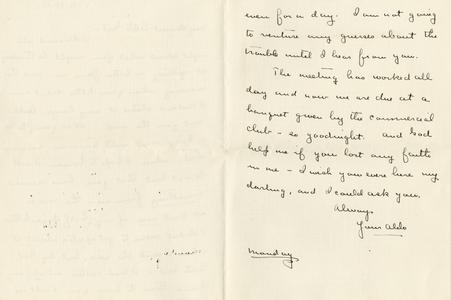 even for a day. I am not going
to venture any guesses about the
trouble until I hear from you.
The meeting has worked all
day and now we are due at a
banquet given by the commercial
club - so goodnight. And God
help me if you lost any faith
in me - I wish you were here my
darling, and I could ask you.
Always
Your Aldo
Monday